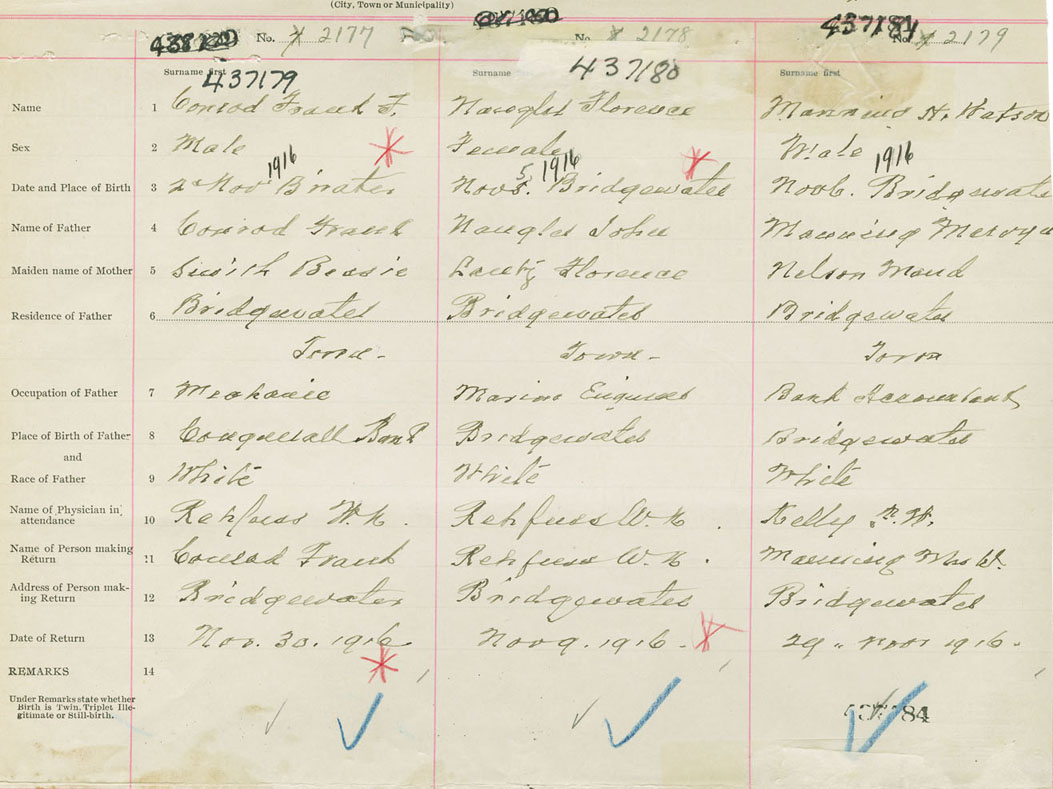 (City, Town or Municipality)
No. 2177 No. 2178 No. 2179
437179 437180 437184
Surname first Surname Surname first
Name 1 Conrod Frank F. Naugler Florence Manning H. Watson
Sex 2 Male Female Male
1916 5 1916 1916
Date and Place of Birth 3 2 Nov. B'water Nov 5. Bridgewater Nov 6. Bridgewater
Name of Father 4 Conrod Frank Naugler John Manning Mervyn
Maiden name of Mother 5 Smith Bessie Lantz Florence Nelson Maud
Residence of Father 6 Bridgewater Bridgewater Bridgewater
Town - Town - Town
Occupation of Father 7 Mechanic Marine Engineer Bank Accountant
Place of Birth of Father 8 Conquerall Bank Bridgewater Bridgewater
and
Race of Father 9 White White White
Name of Physician in attendance 10 Rehfuss W. N. Rehfuss W. N. Kelly W.
Name of Person making Return 11 Conrod Frank Rehfuss W. N. Manning Mrs W.
Address of Person making Return 12 Bridgewater Bridgewater Bridgewater
Date of Return 13 Nov. 30. 1916 Nov 9. 1916 - 29 Nov 1916 -
REMARKS 14
Under Remarks state whether
Birth is Twin, Triplet Ille-
gitimate or Still-birth.